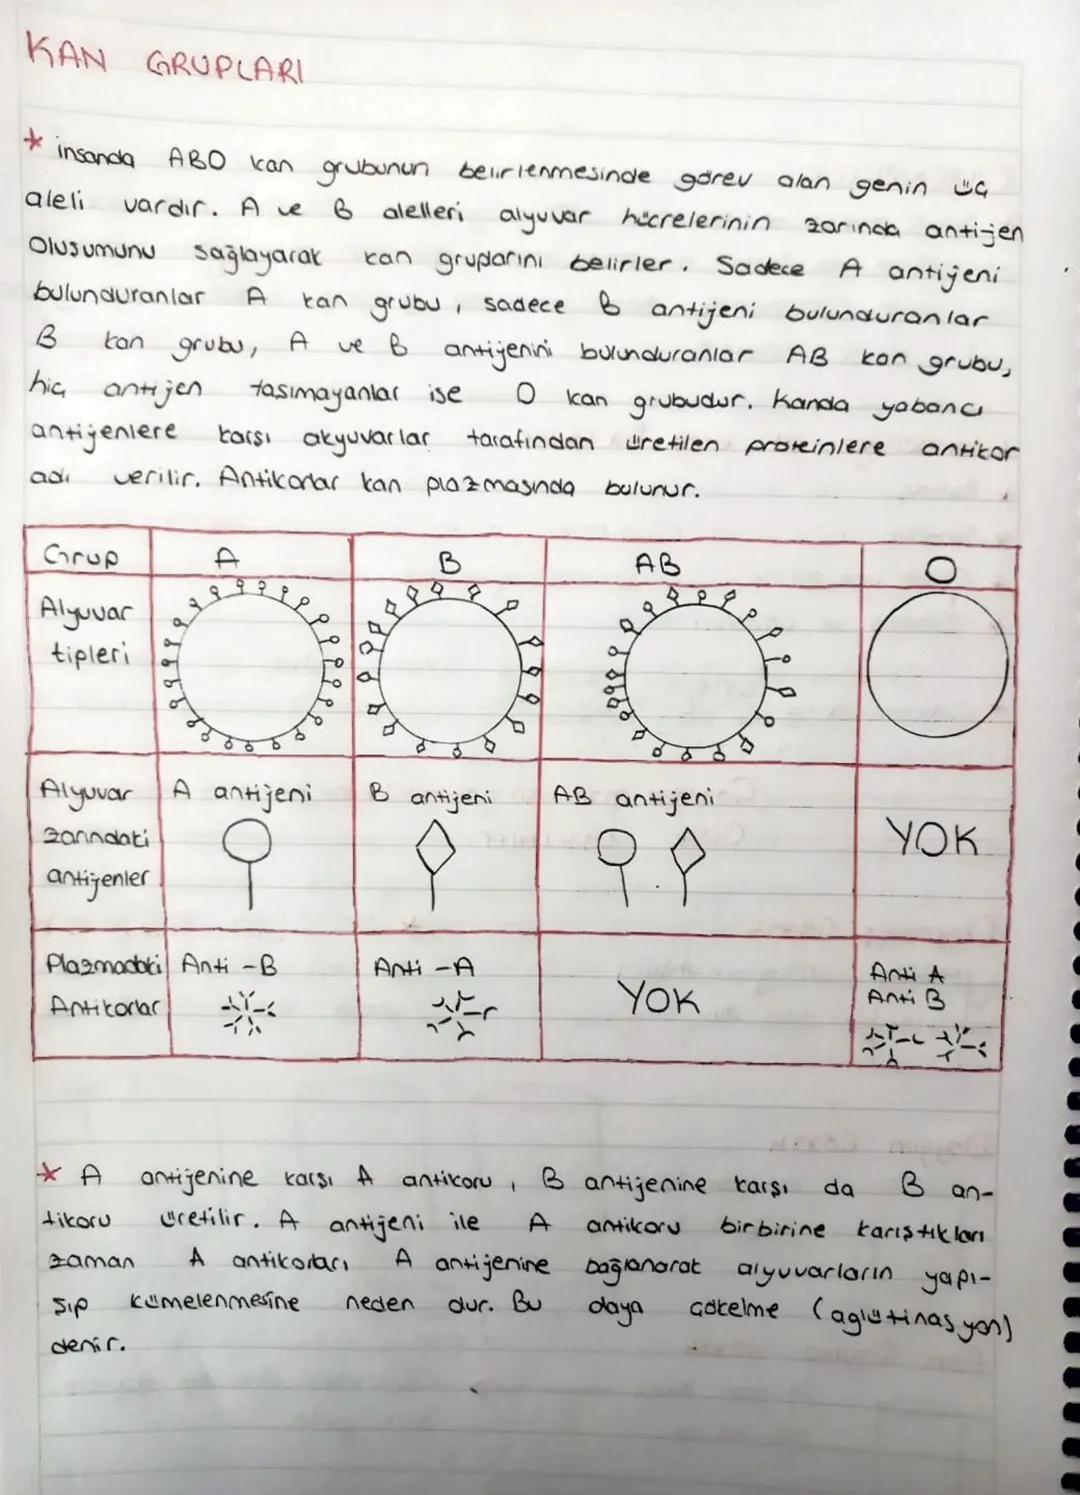 KAN GRUPLARI
* insanda ABO kan grubunun belirlenmesinde görev alan genin üç
aleli vardır. A ve B alelleri alyuvar hücrelerinin zarında antijen
Oluşumunu sağlayarak kan gruplarını belirler. Sadece A antijeni
bulunduranlar A kan grubu, sadece B antijeni bulunduranlar
B kan grubu, A ve B antijenini bulunduranlar AB kan grubu,
hiç antijen taşımayanlar ise O kan grubudur. Kanda yabancı
antijenlere karşı akyuvarlar tarafından üretilen proteinlere antikor
adı verilir. Antikorlar kan plazmasında bulunur.
Grup A B AB O
Alyuvar
tipleri
Alyuvar A antijeni B antijeni AB antijeni
zarındaki YOK
antijenler
Plazmadaki Anti -B Anti -A Anti A
Antikorlar YOK Anti B
* A antijenine karşı A antikoru, B antijenine karşı da B an-
tikoru üretilir. A antijeni ile A antikoru birbirine karıştıkları
zaman A antikorları A antijenine bağlanarak alyuvarların yapı-
şıp kümelenmesine neden olur. Bu olaya çökelme (aglütinasyon)
denir.